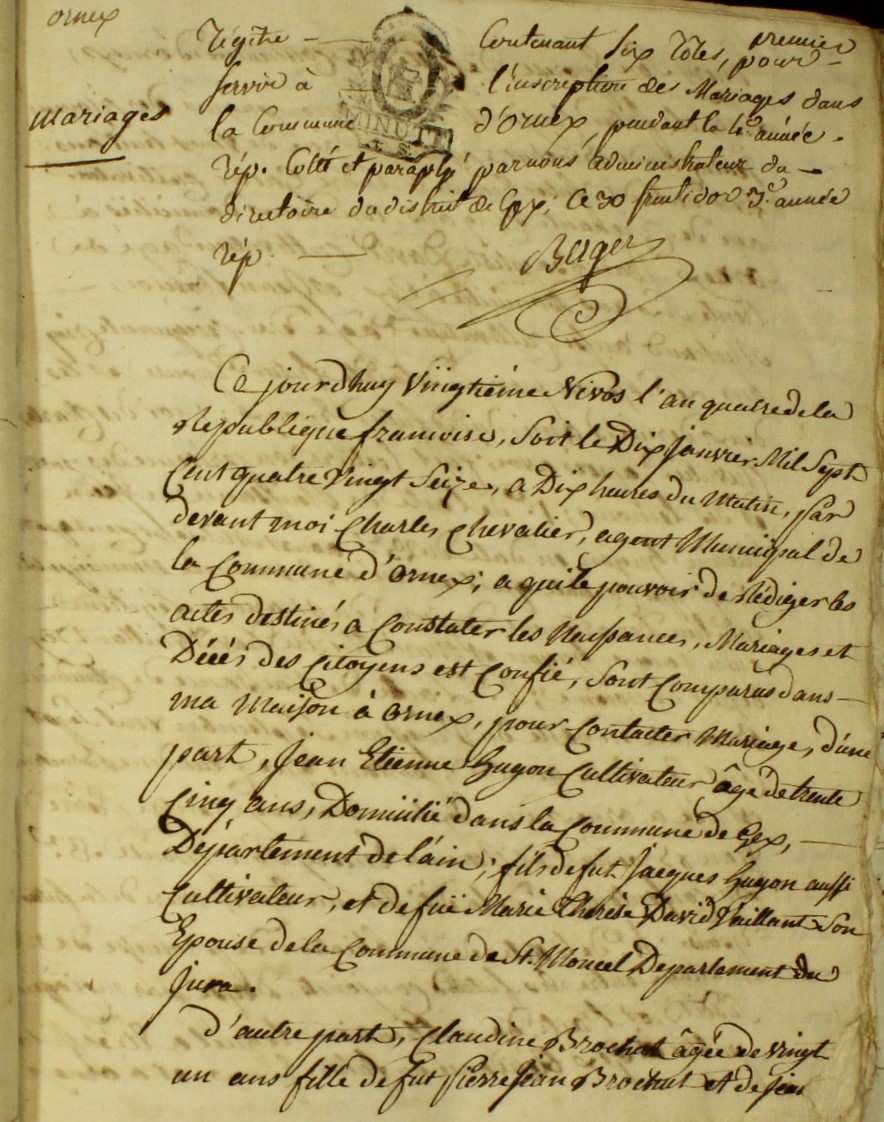 ornex
Mariages
régitre — Contenant six rôles, premier
pour
servir à l'inscription des Mariages dans
la Commune d'Ornex, pendant la 4e année
rép. Cotté et paraphé par nous administrateur du
directoire du district de Gex; Ce 30 fructidor 3e année
rép.
MINUTE
Ce jourdhuy Vingtiéme Nivos l'an quatre de la
Republique francoise, soit le Dix Janvier Mil Sept
Cent quatre Vingt Seize, a Dix heures du Matin, par
devant moi Charles Chevalier, agent Municipal de
la Commune d'Ornex; a qui le pouvoir de Rédiger les
actes destinés a Constater les Naissances, Mariages et
Décés des Citoyens est Confié, Sont Comparus dans —
ma Maison à Ornex, pour Contacter Mariage, d'une
part, Jean Etienne Gugon Cultivateur âgé de trente
Cinq ans, Domicilié dans la Commune de Gex, —
Département de l'ain; fils de fut Jacques Gugon aussi
Cultivateur, et de fuë Marie Thérèse David Vaillant Son
Epouse de la Commune de St. Moucel Departement du
Jura.
D'autre part, Claudine Brochut âgée de vingt
un ans fille de fut Pierre Jean Brochut et de